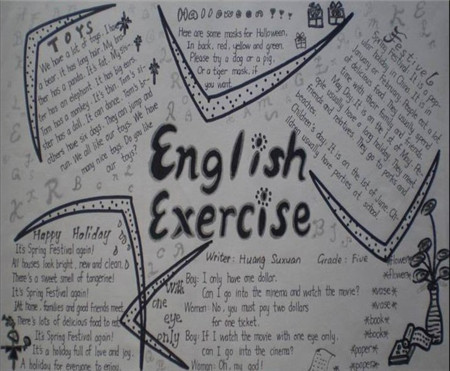 TOYS
We have a lot of toys. I have
a bear. it has long hair. My
ter has a panda. It's fat. My
her has an elephant. It has big ears.
Tom has a monkey. It's thin. Tom's
ster has a doll. It can dance. Tom's
others have six dogs. They can jump and
run. We all like our toys. We have
many nice toys. Do you like
our toys?
Here are some masks for Halloween.
In back, red, yellow and green.
Please try a dog or a pig,
Or a tiger mask, if
you want.
of delicious food.
May Day: It is on the 1st of May.
ople usually have a long holiday, they meet
friends and relatives. they go to parks and
beaches.
Children's day: It is on the 1st of June.
ildren usually have parties at school.
English
Exercise
Writer: Huang Suxuan Grade: Five
Happy Holiday
It's Spring Festival again!
All houses look bright, new and clean.
There's a sweet smell of tangerine!
It's Spring Festival again!
At home, families and good friends meet
There's lots of delicious food to eat
It's Spring Festival again!
It's a holiday full of love and joy.
A holiday for everyone to enjoy.
With
one
eye
only
Boy: I only have one dollar.
Can I go into the minema and watch the movie?
Woman: No, you must pay two dollars
for one ticket.
Boy: If I watch the movie with one eye only.
can I go into the cinema?
Woman: Oh, my god!
*flower*
*flower*
*vase*
*vase*
*book*
*book*
*paper*
*paper*